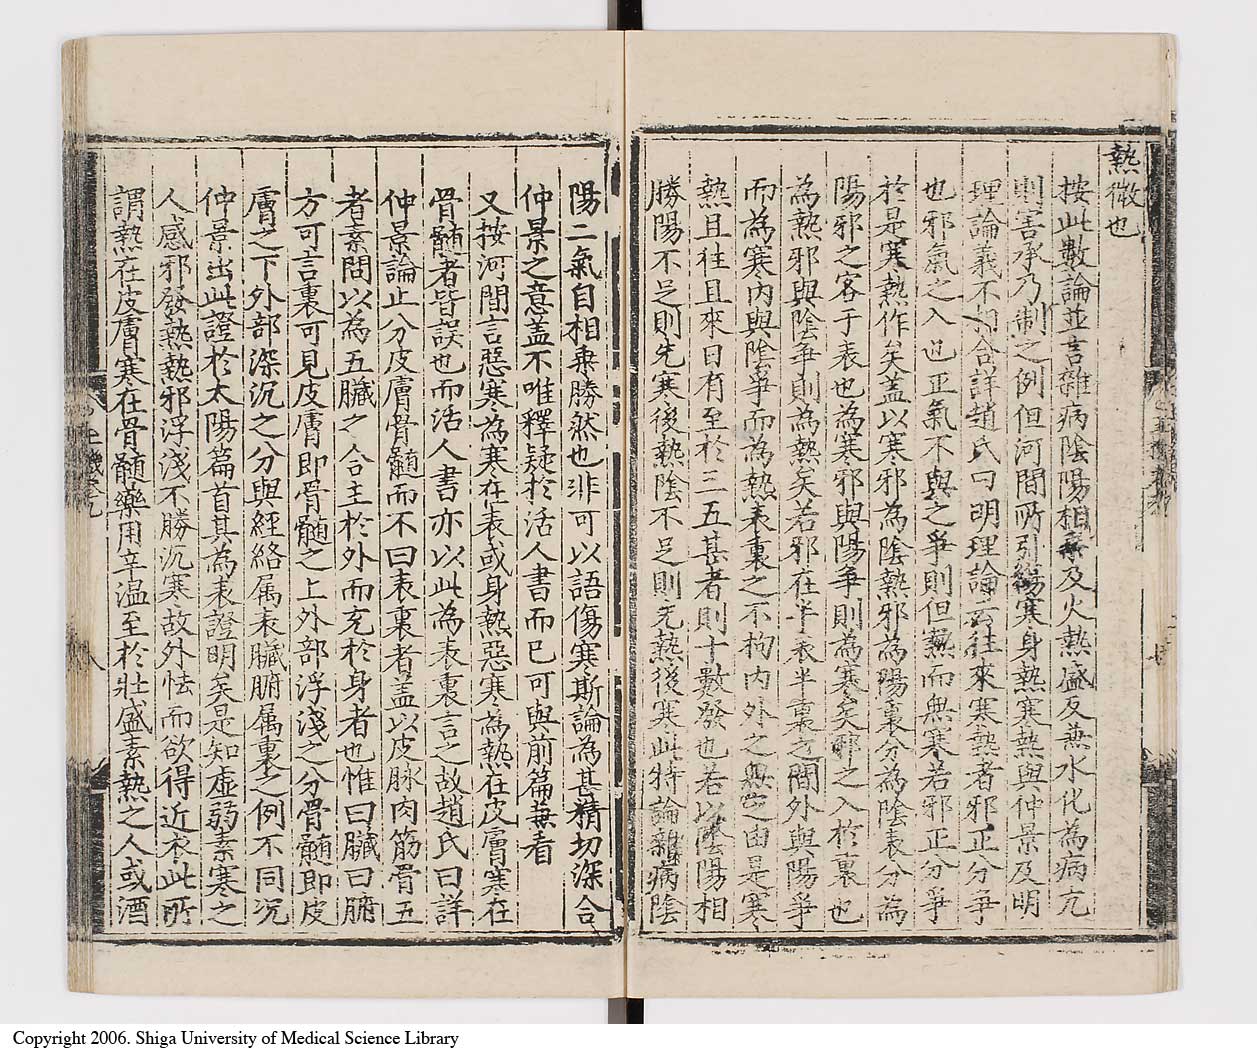 熱微也
按此數論並言雜病陰陽相乘及火熱盛及兼水化為病亢
則害承乃制之例但河間所引傷寒身熱寒熱與仲景及明
理論義不相合詳趙氏曰明理論云往來寒熱者邪正分爭
也邪氣之入也正氣不與之爭則但熱而無寒若邪正分爭
於是寒熱作矣盖以寒邪為陰熱邪為陽裏分為陰表分為
陽邪之客于表也為寒邪與陽爭則為寒矣邪之入於裏也
為熱邪與陰爭則為熱矣若邪在半表半裏之間外與陽爭
而為寒内與陰爭而為熱表裏之不拘内外之無定由是寒
熱且往且來日有至於三五甚者則十數發也若以陰陽相
勝陽不足則先寒後熱陰不足則先熱後寒此特論雜病陰
陽二氣自相乘勝然也非可以語傷寒斯論為甚精切深合
仲景之意盖不唯釋疑於活人書而已可與前篇兼看
又按河間言惡寒為寒在表或身熱惡寒為熱在皮膚寒在
骨髓者皆誤也而活人書亦以此為表裏言之故趙氏曰詳
仲景論止分皮膚骨髓而不曰表裏者盖以皮脉肉筋骨五
者素問以為五臟之合主於外而充於身者也惟曰臟曰腑
方可言裏可見皮膚即骨髓之上外部浮淺之分骨髓即皮
膚之下外部深沉之分與經絡属表臟腑属裏之例不同况
仲景出此證於太陽篇首其為表證明矣是知虛弱素寒之
人感邪發熱熱邪浮淺不勝沉寒故外怯而欲得近衣此所
謂熱在皮膚寒在骨髓藥用辛溫至於壯盛素熱之人或酒
Copyright 2006. Shiga University of Medical Science Library